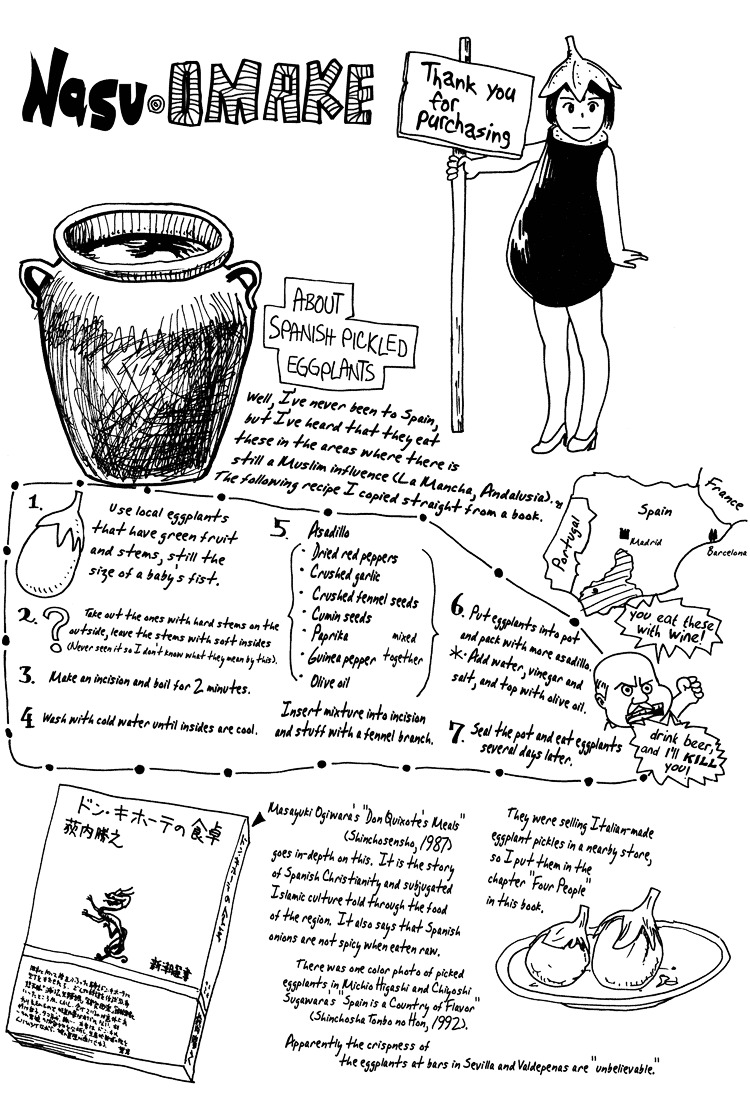 Nasu◎OMAKE
Thank you
for
purchasing
ABOUT
SPANISH PICKLED
EGGPLANTS
Well, I've never been to Spain,
but I've heard that they eat
these in the areas where there is
still a Muslim influence (La Mancha, Andalusia).
The following recipe I copied straight from a book.
1.
Use local eggplants
that have green fruit
and stems, still the
size of a baby's fist.
2. ?
Take out the ones with hard stems on the
outside, leave the stems with soft insides
(Never seen it so I don't know what they mean by this).
3. Make an incision and boil for 2 minutes.
4 Wash with cold water until insides are cool.
5. Asadillo
· Dried red peppers
· Crushed garlic
· Crushed fennel seeds
· Cumin seeds
· Paprika
· Guinea pepper
· Olive oil
mixed
together
Insert mixture into incision
and stuff with a fennel branch.
6. Put eggplants into pot
and pack with more asadillo.
* Add water, vinegar and
salt, and top with olive oil.
7. Seal the pot and eat eggplants
several days later.
France
Spain
Portugal
Madrid
Barcelona
you eat these
with wine!
drink beer,
and I'll KILL
you!
ドン・キホーテの食卓
荻内勝之
新潮選書
Masayuki Ogiwara's "Don Quixote's Meals"
(Shinchosensho, 1987)
goes in-depth on this. It is the story
of Spanish Christianity and subjugated
Islamic culture told through the food
of the region. It also says that Spanish
onions are not spicy when eaten raw.
There was one color photo of picked
eggplants in Michio Higashi and Chiyoshi
Sugawara's "Spain is a Country of Flavor"
(Shinchosha Tonbo no Hon, 1992).
Apparently the crispness of
the eggplants at bars in Sevilla and Valdepenas are "unbelievable."
They were selling Italian-made
eggplant pickles in a nearby store,
so I put them in the
chapter "Four People"
in this book.